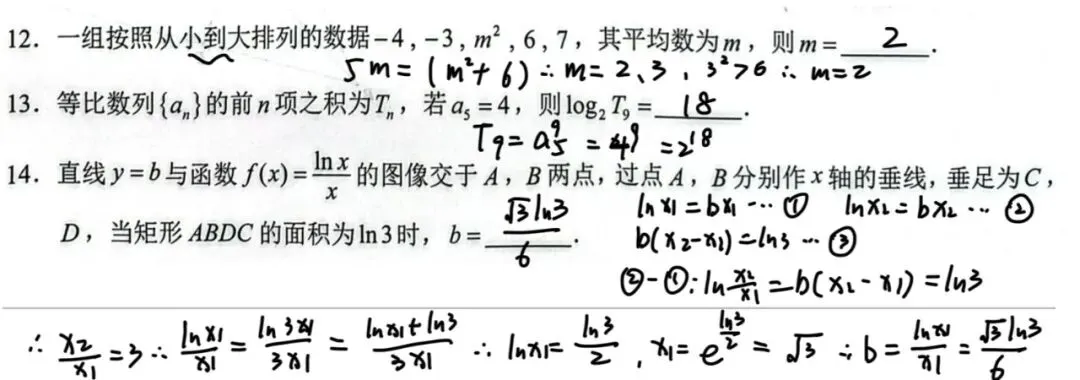 12. 一组按照从小到大排列的数据-4,-3,m²,6,7,其平均数为m,则m=2.
5m=(m²+6)∴m=2、3,3²>6∴m=2
13. 等比数列{aₙ}的前n项之积为Tₙ,若a₅=4,则log₂T₉=18.
T₉=a₅⁹=4⁹=2¹⁸
14. 直线y=b与函数f(x)=ln x/x的图像交于A,B两点,过点A,B分别作x轴的垂线,垂足为C,
lnx₁=bx₁…① lnx₂=bx₂…②
D,当矩形ABDC的面积为ln3时,b=√3ln3/6.
b(x₂-x₁)=ln3…③
②-①:ln x₂/x₁=b(x₂-x₁)=ln3
∴x₂/x₁=3∴lnx₁/x₁=ln3x₁/3x₁=lnx₁+ln3/3x₁∴lnx₁=ln3/2,x₁=e^(ln3/2)=√3∴b=lnx₁/x₁=√3ln3/6